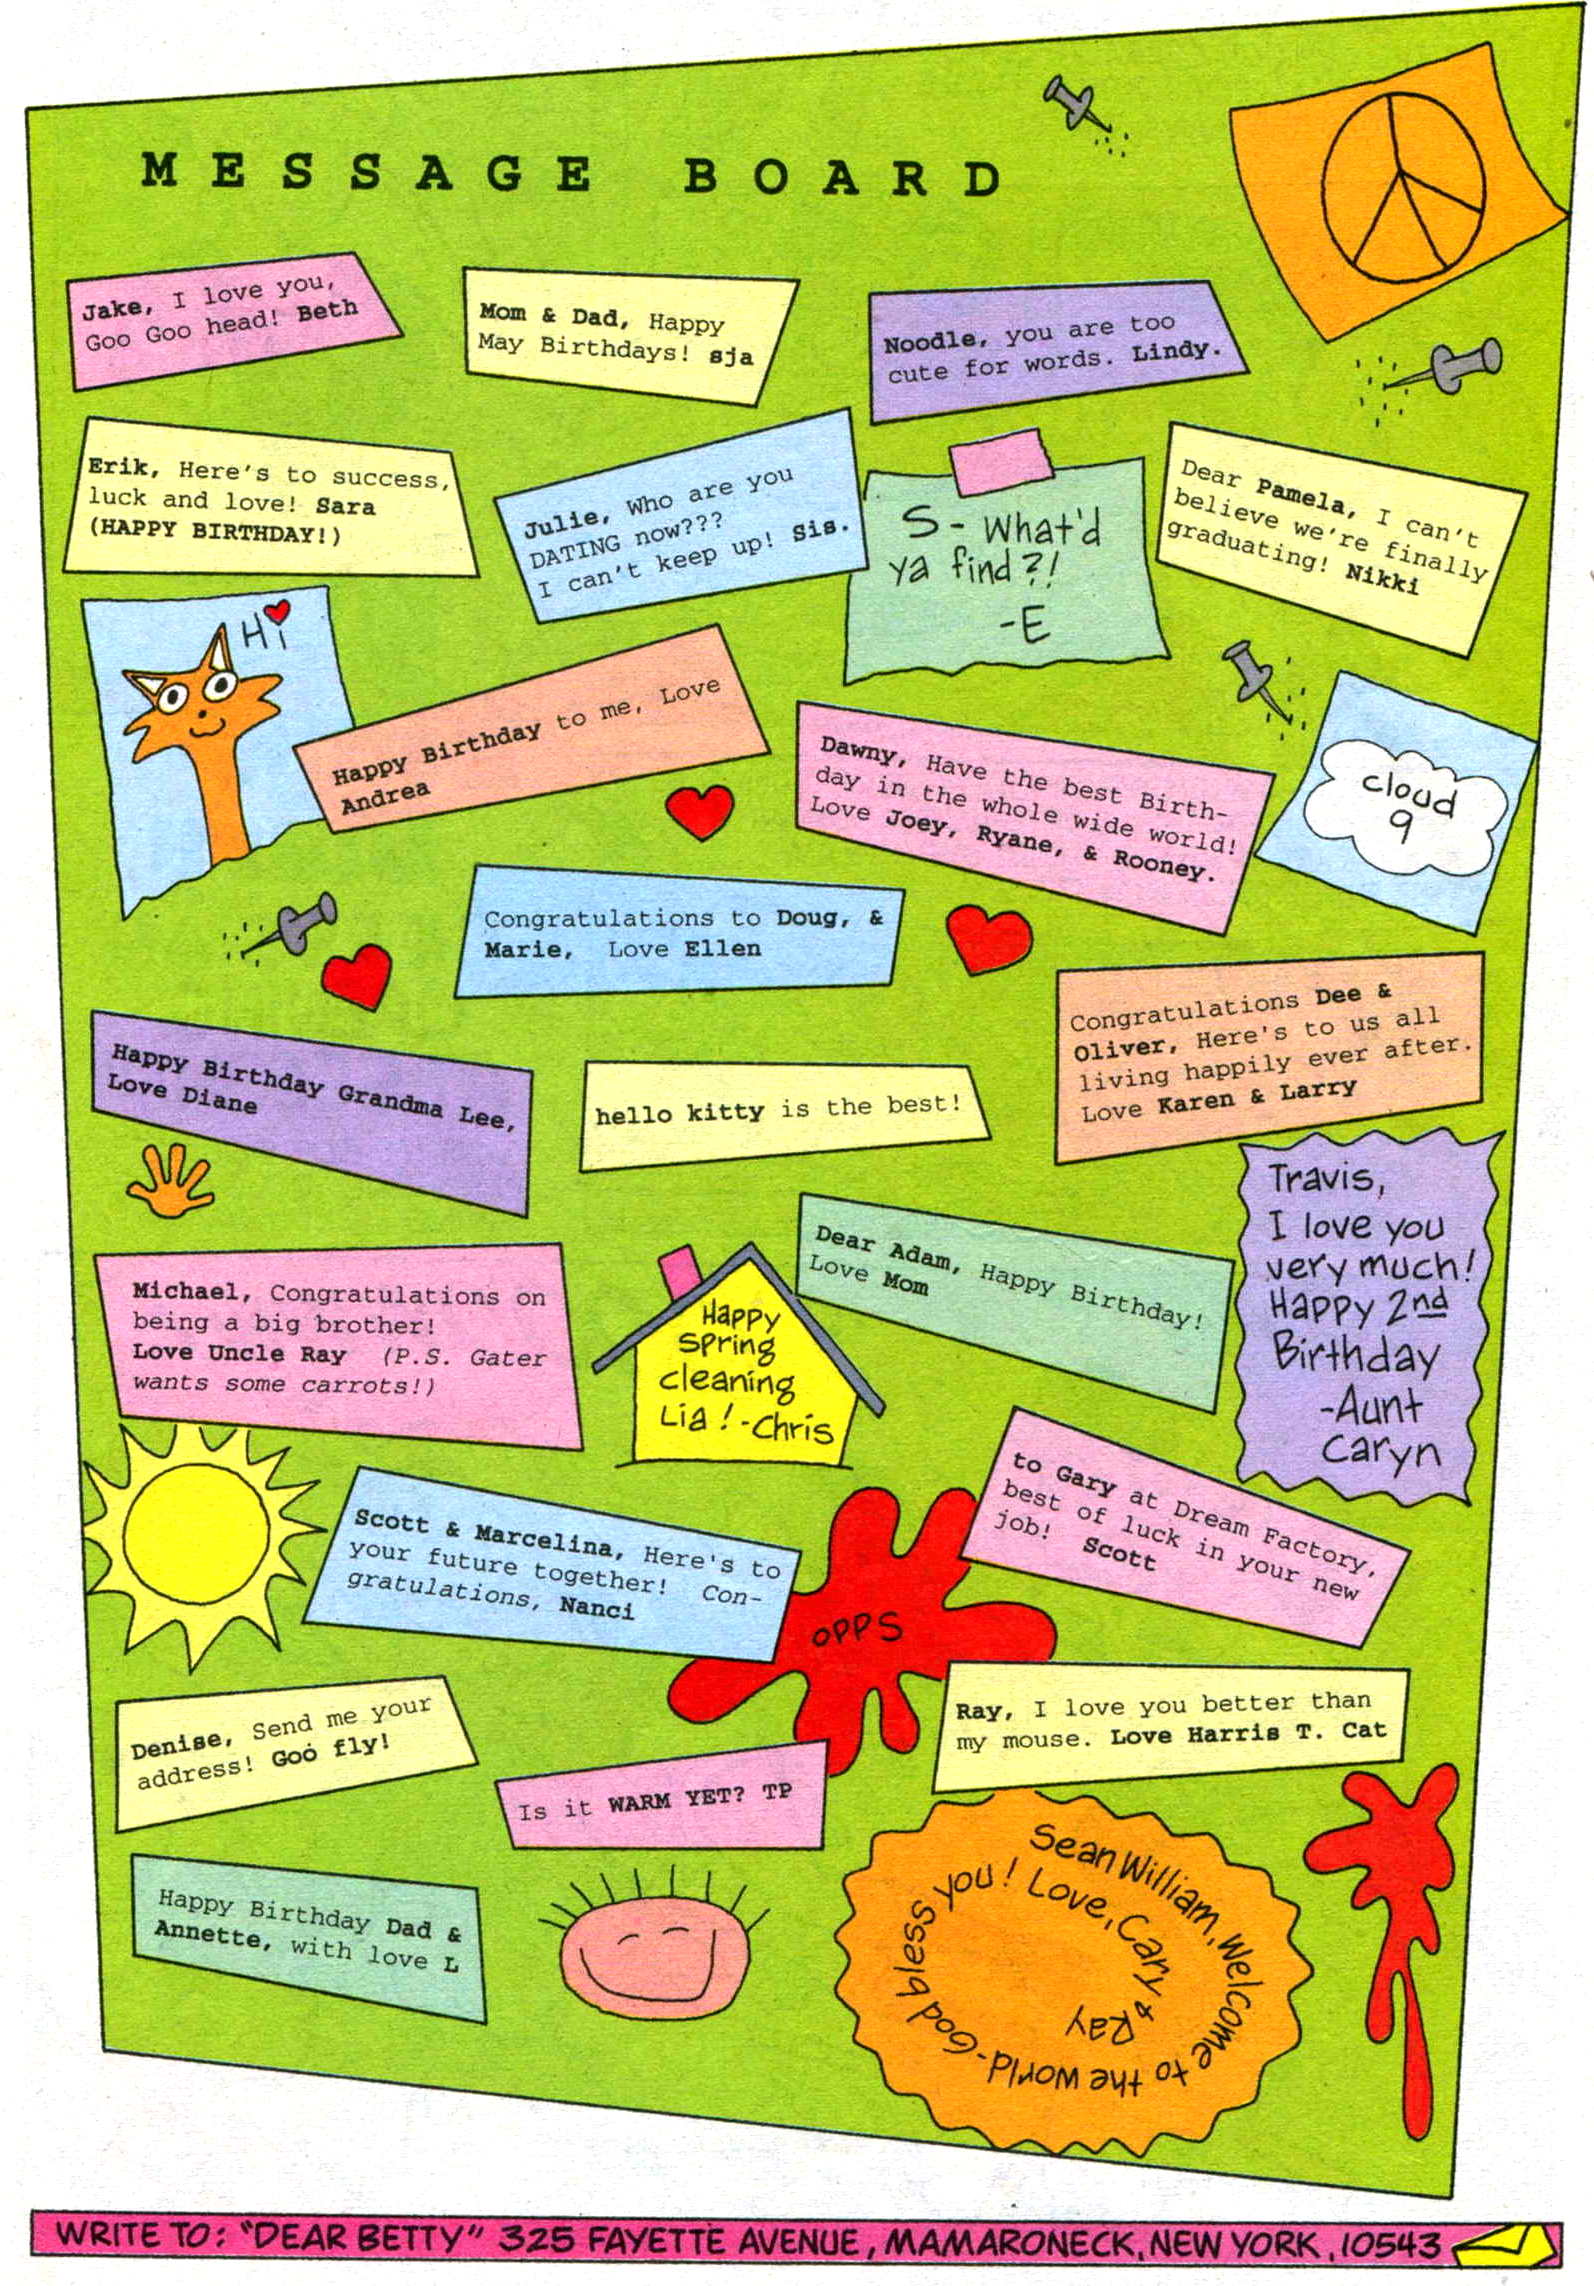 MESSAGE BOARD
Jake, I love you,
Goo Goo head! Beth
Mom & Dad, Happy
May Birthdays! sja
Noodle, you are too
cute for words. Lindy.
Erik, Here's to success,
luck and love! Sara
(HAPPY BIRTHDAY!)
Julie, Who are you
DATING now???
I can't keep up! Sis.
S- What'd
ya find?!
-E
Dear Pamela, I can't
believe we're finally
graduating! Nikki
Hi
Happy Birthday to me, Love
Andrea
Dawny, Have the best Birth-
day in the whole wide world!
Love Joey, Ryane, & Rooney.
cloud
9
Congratulations to Doug, &
Marie, Love Ellen
Congratulations Dee &
Oliver, Here's to us all
living happily ever after.
Love Karen & Larry
Happy Birthday Grandma Lee,
Love Diane
hello kitty is the best!
Travis,
I love you
very much!
Happy 2nd
Birthday
-Aunt
Caryn
Dear Adam, Happy Birthday!
Love Mom
Michael, Congratulations on
being a big brother!
Love Uncle Ray (P.S. Gater
wants some carrots!)
Happy
Spring
cleaning
Lia!-Chris
to Gary at Dream Factory,
best of luck in your new
job! Scott
Scott & Marcelina, Here's to
your future together! Con-
gratulations, Nanci
OPPS
Denise, Send me your
address! Goo fly!
Ray, I love you better than
my mouse. Love Harris T. Cat
Is it WARM YET? TP
Happy Birthday Dad &
Annette, with love L
Sean William, Welcome to the world-God bless you! Love, Cary & Ray
WRITE TO: "DEAR BETTY" 325 FAYETTE AVENUE, MAMARONECK, NEW YORK, 10543